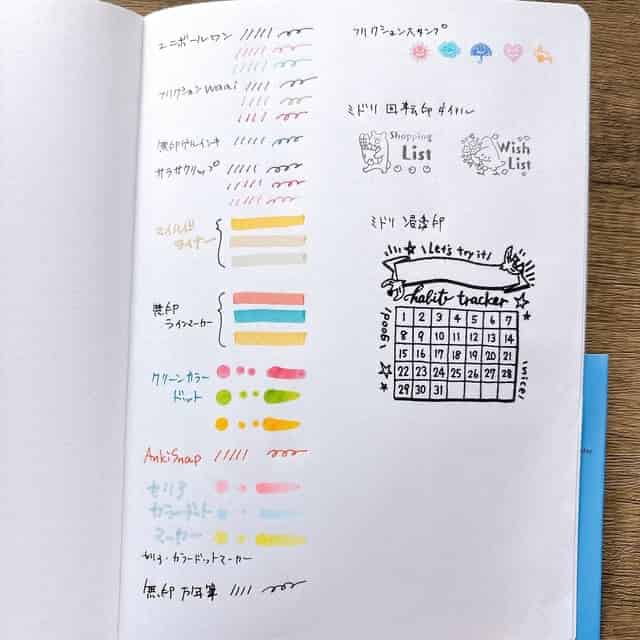 ユニボールワン
フリクションWaai
無印ゲルインキ
サラサクリップ
マイルドライナー
無印
ラインマーカー
クリーンカラー
ドット
AnkiSnap
セリア
カラードット
マーカー
セリア・カラードットマーカー
無印 万年筆
フリクションスタンプ
ミドリ 回転印 ダイヤル
Shopping
List
Wish
List
ミドリ 浸透印
Let's try it!
habits tracker
good!
nice!
1 2 3 4 5 6 7
8 9 10 11 12 13 14
15 16 17 18 19 20 21
22 23 24 25 26 27 28
29 30 31